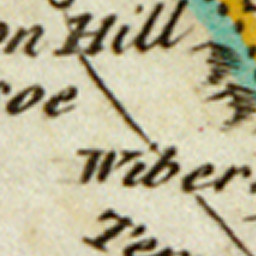 on Hill
oe
Wiber
Te